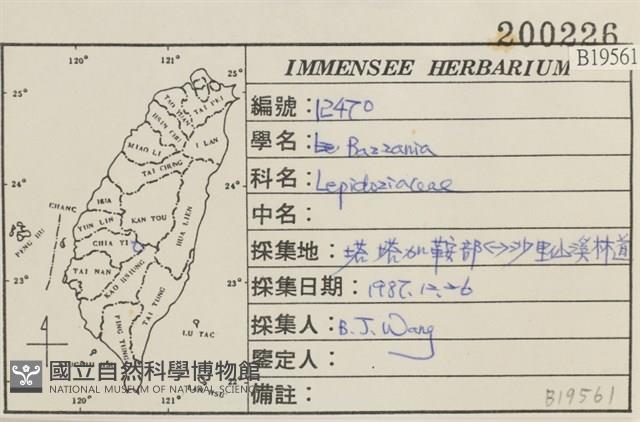 200226
B19561
IMMENSEE HERBARIUM
編號：12470
學名：Bazzania
科名：Lepidoziaceae
中名：
採集地：塔塔加鞍部<->沙里仙溪林道
採集日期：1987.12.26
採集人：B. J. Wang
鑒定人：
備註：
B19561
120° 121° 25°
25°
TAO YUAN
TAI PEI
HSIN CHU
I LAN
MIAO LI
TAI CHUNG
24°
24°
CHANG
HUA
NAN TOU
HUA LIEN
YUN LIN
PENG HU
CHIA YI
TAI NAN
KAO HSIUNG
23°
23°
TAI TUNG
PING TUNG
LU TAC
國立自然科學博物館
NATIONAL MUSEUM OF NATURAL SCIENCE
120° 121°